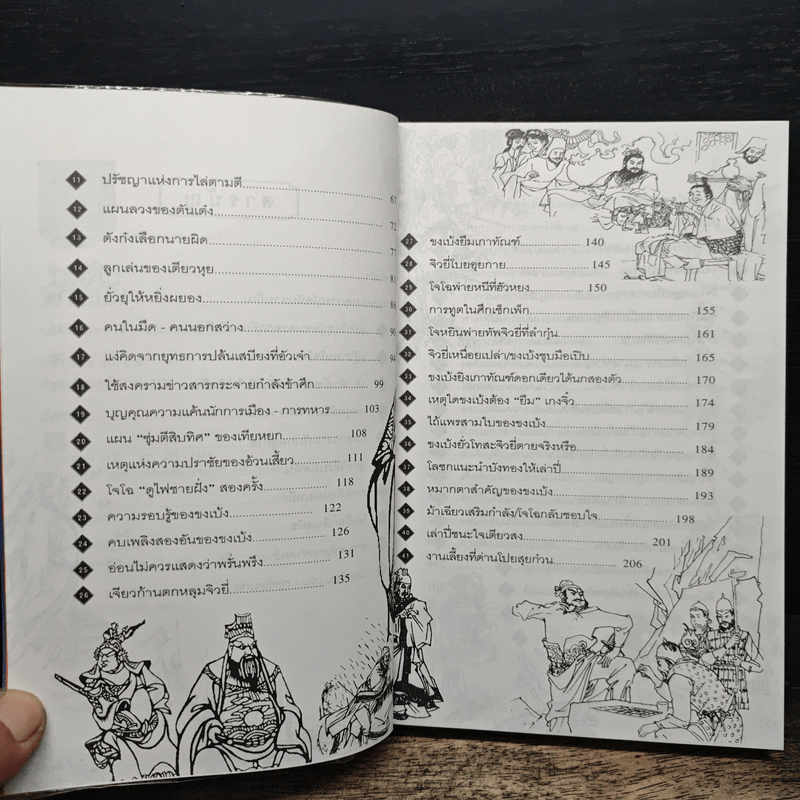 11 ปรัชญาแห่งการไล่ตามตี 67
12 แผนลวงของตันเต๋ง 72
13 ตังก๋งเลือกนายผิด 77
14 ลูกเล่นของเตียวหุย 81
15 ยั่วยุให้หยิ่งผยอง 86
16 คนในมืด - คนนอกสว่าง 90
17 แง่คิดจากยุทธการปล้นเสบียงที่อัวเจ๋า 94
18 ใช้สงครามข่าวสารกระจายกำลังข้าศึก 99
19 บุญคุณความแค้นนักการเมือง - การทหาร 103
20 แผน “ซุ่มตีสิบทิศ” ของเทียหยก 108
21 เหตุแห่งความปราชัยของอ้วนเสี้ยว 111
22 โจโฉ “ดูไฟชายฝั่ง” สองครั้ง 118
23 ความรอบรู้ของขงเบ้ง 122
24 คบเพลิงสองอันของขงเบ้ง 126
25 อ่อนไม่ควรแสดงว่าพรั่นพรึง 131
26 เจียวก้านตกหลุมจิวยี่ 135
27 ขงเบ้งยืมเกาทัณฑ์ 140
28 จิวยี่โบยอุยกาย 145
29 โจโฉพ่ายหนีที่ฮัวหยง 150
30 การทูตในศึกเซ็กเพ็ก 155
31 โจหยินพ่ายทัพจิวยี่ที่ลำกุ๋น 161
32 จิวยี่เหนื่อยเปล่า/ขงเบ้งชุบมือเปิบ 165
33 ขงเบ้งยิงเกาทัณฑ์ดอกเดียวได้นกสองตัว 170
34 เหตุใดขงเบ้งต้อง “ยืม” เกงจิ๋ว 174
35 ไถ้แพรสามใบของขงเบ้ง 179
36 ขงเบ้งยั่วโทสะจิวยี่ตายจริงหรือ 184
37 โลซกแนะนำบังทองให้เล่าปี่ 189
38 หมากตาสำคัญของขงเบ้ง 193
39 ม้าเฉียวเสริมกำลัง/โจโฉกลับชอบใจ 198
40 เล่าปี่ชนะใจเตียวสง 201
41 งานเลี้ยงที่ด่านโปยสุยก๋วน 206